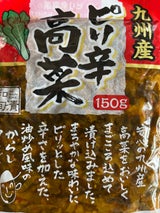 九州産
ピリ辛
高菜
150g
旨みの九州産
高菜をおいしく
まごころ込めて
漬け込みました。
まろやかな味わいに
ピリッとした
辛さを加えた、
油炒め風味の
からし